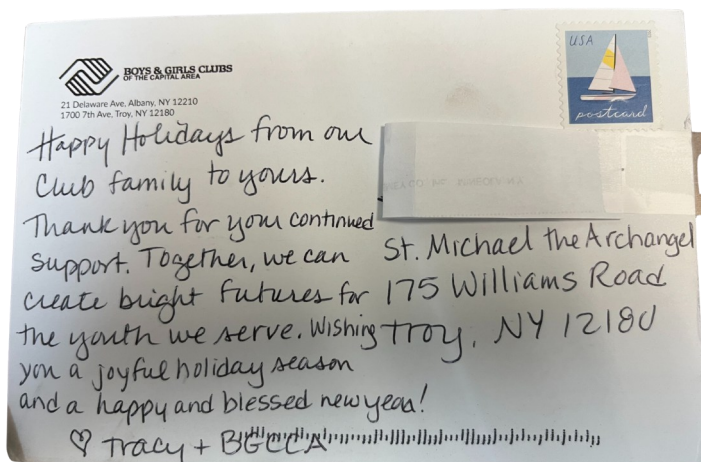 BOYS & GIRLS CLUBS
OF THE CAPITAL AREA
21 Delaware Ave, Albany, NY 12210
1700 7th Ave, Troy, NY 12180
USA
postcard
Happy Holidays from our
Club family to yours.
Thank you for your continued
support. Together, we can
create bright futures for
the youth we serve. Wishing
you a joyful holiday season
and a happy and blessed new year!
♡ Tracy + BGCCA
St. Michael the Archangel
175 Williams Road
Troy, NY 12180